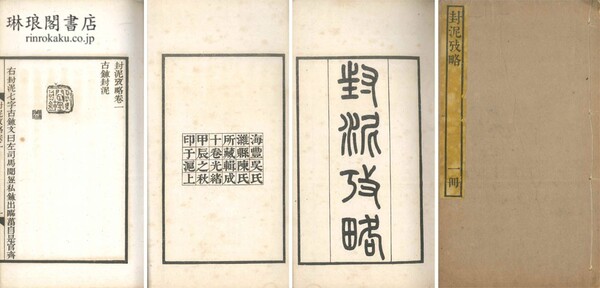 琳琅閣書店
rinrokaku.co.jp
封泥攷略卷一
古鉨封泥
右封泥七字古鉨文曰左司馬聞
封泥攷略
海豐吳氏
濰縣陳氏
所藏輯成
十卷光緒
甲辰之秋
印于滬上
封泥攷略
一冊